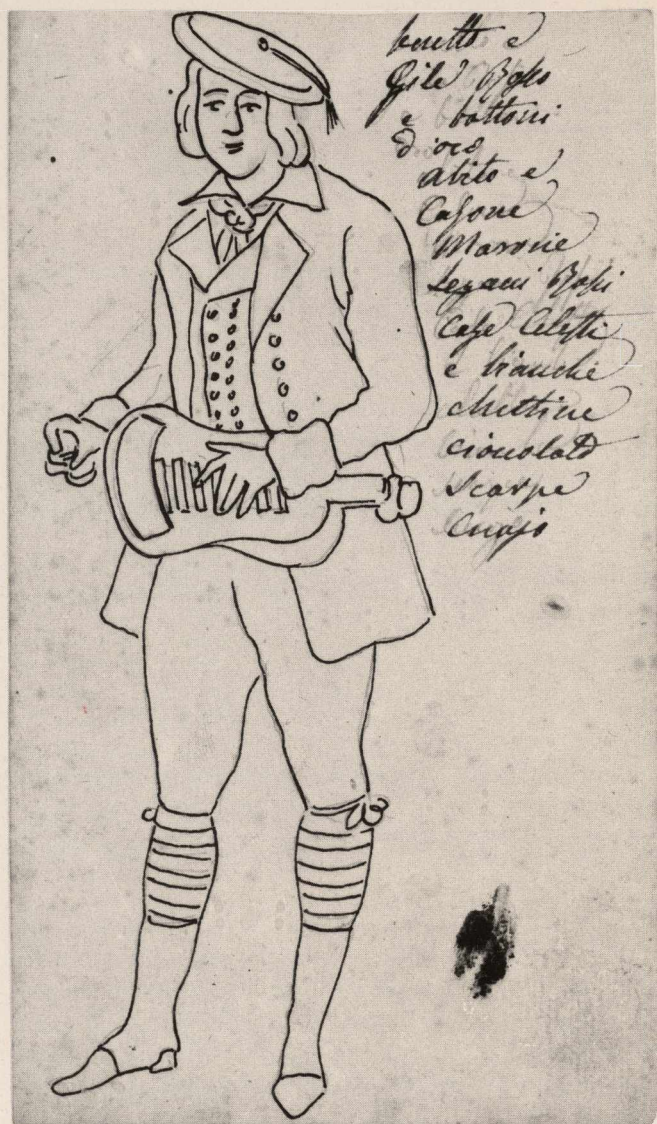 beretto e
Gilè Rosso
e bottoni
d'oro
abito e
Calzone
Marone
Legami Rossi
calze Celesti
e bianche
chettine
cioccolato
Scarpe
Cuojo